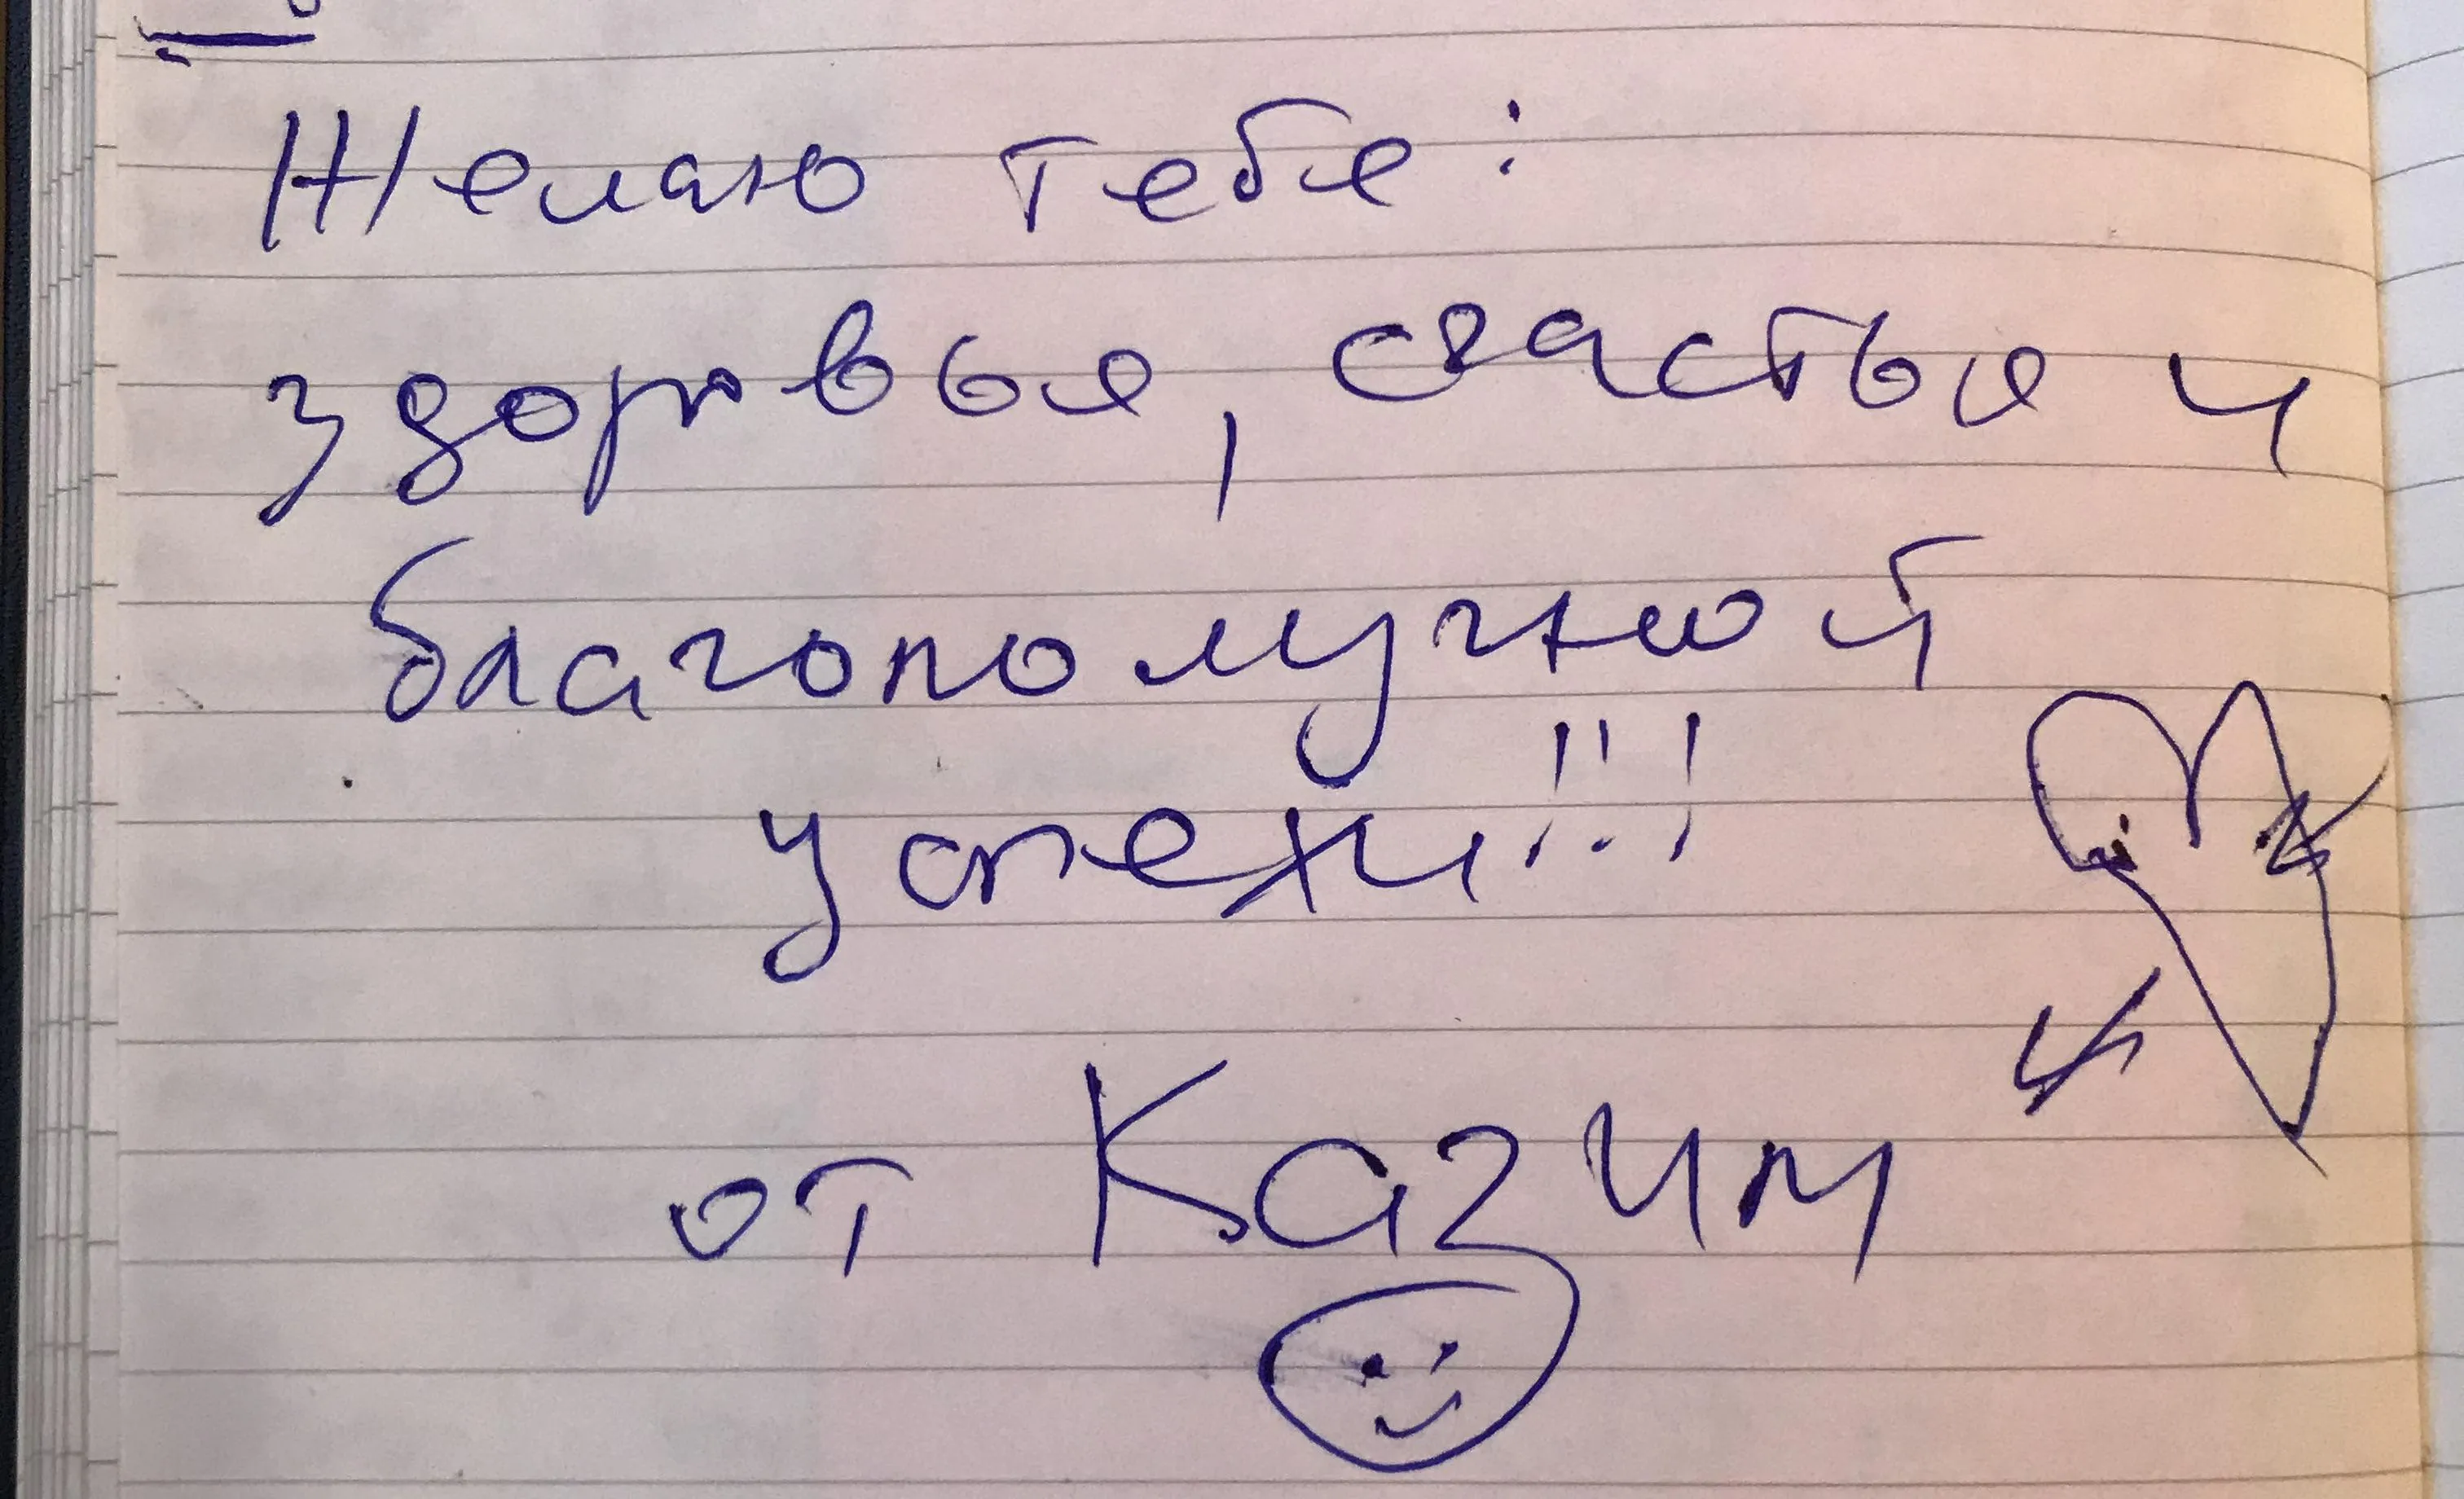 Желаю тебе:
здоровье, счастье и
благополучной
успехи!!!
от Казим